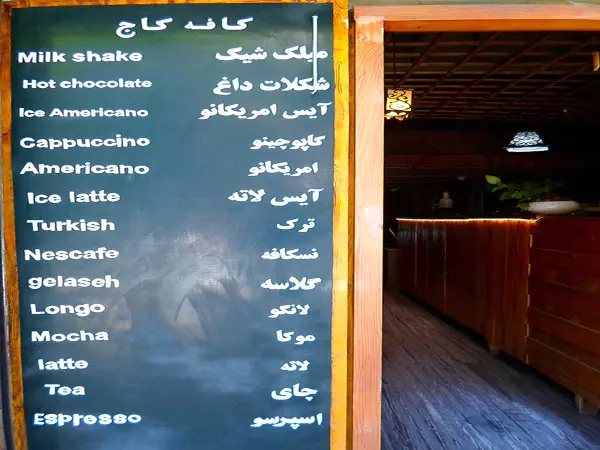 کافه کاج
Milk shake میلک شیک
Hot chocolate شکلات داغ
Ice Americano آیس امریکانو
Cappuccino کاپوچینو
Americano امریکانو
Ice latte آیس لاته
Turkish ترک
Nescafe نسکافه
gelaseh گلاسه
Longo لانگو
Mocha موکا
latte لاته
Tea چای
Espresso اسپرسو